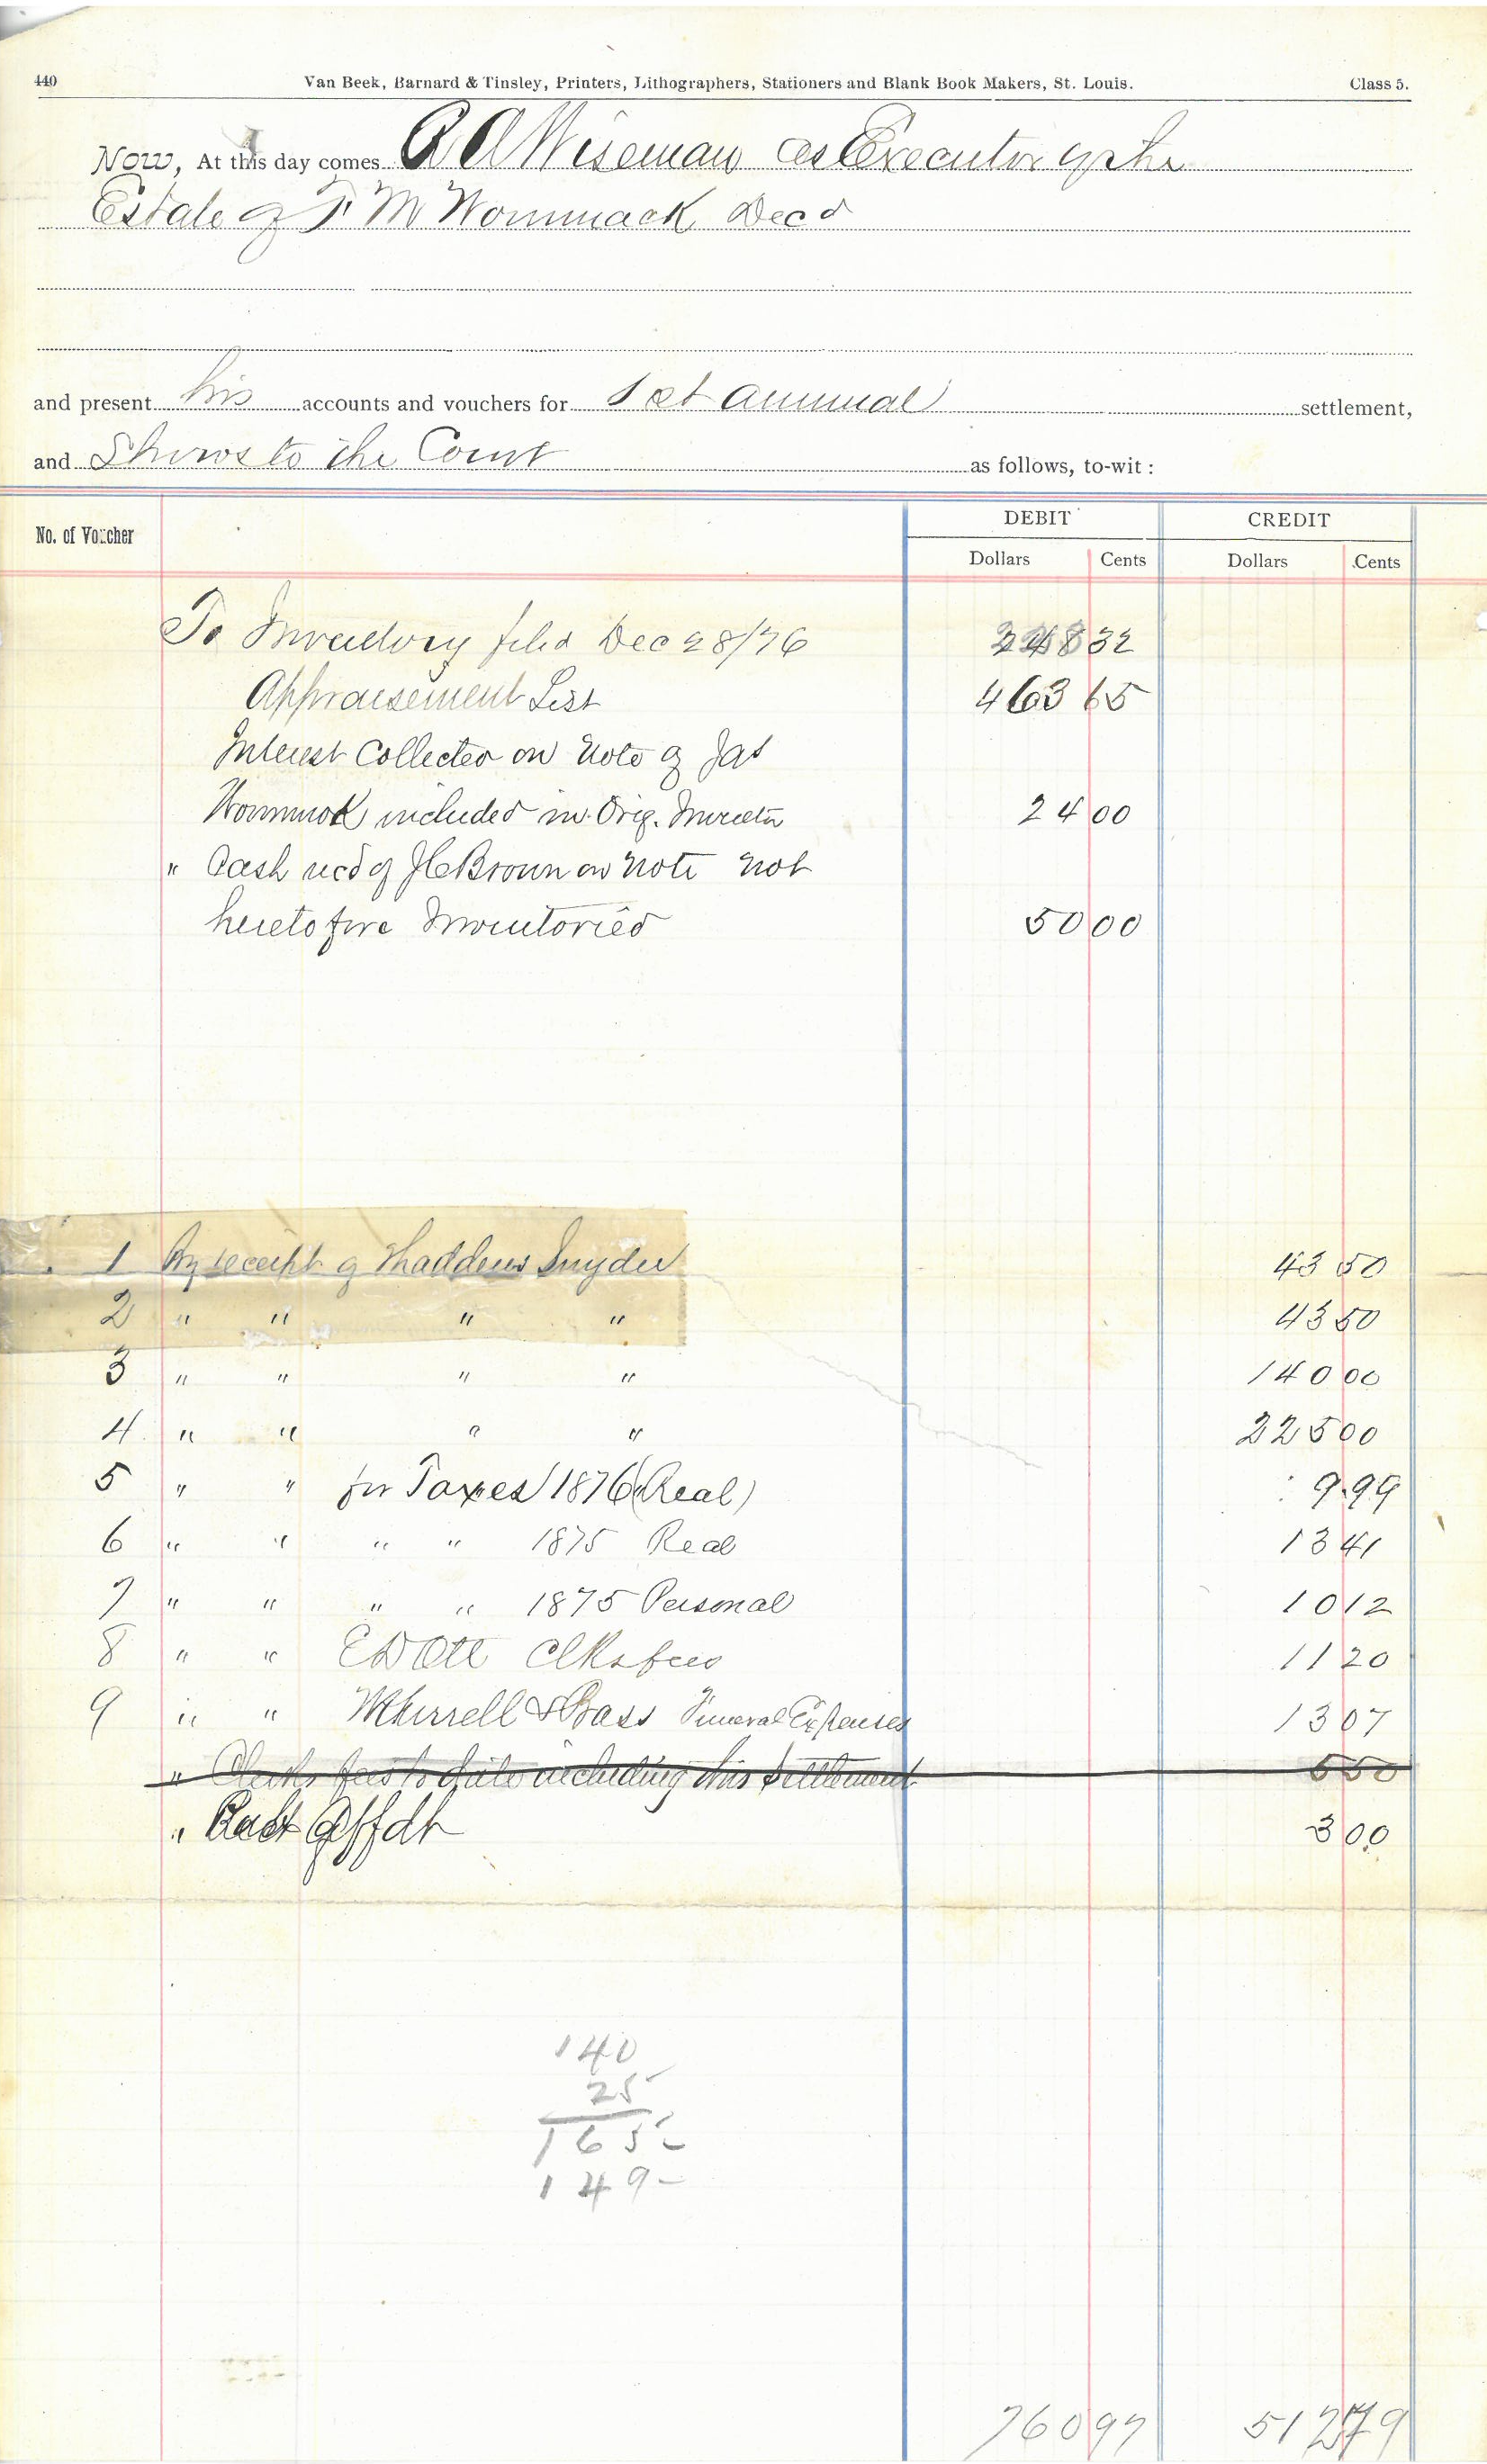 440 Van Beek, Barnard & Tinsley, Printers, Lithographers, Stationers and Blank Book Makers, St. Louis. Class 5.
Now, At this day comes R A Wiseman as Executor of the
Estate of F M Wommack Decd
and present his accounts and vouchers for 1st annual settlement,
and Shows to the Court as follows, to-wit:
No. of Voucher DEBIT CREDIT
Dollars Cents Dollars Cents
To Inventory filed Dec 28/76 223 32
Appraisement List 463 65
Interest Collected on Note of Jas
Wommack included in Orig. Invento 24 00
" Cash recd of J C Brown on Note not
heretofore Inventoried 50 00
1 By receipt of Thaddeus Snyder 43 50
2 " " " " 43 50
3 " " " " 140 00
4 " " " " 225 00
5 " " for Taxes 1876 (Real) 9 99
6 " " " " 1875 Real 13 41
7 " " " " 1875 Personal 10 12
8 " " E D Ott Clks fees 11 20
9 " " McMurrell & Bass Funeral Expenses 13 07
" Clerks fees to date including this Settlement 5 50
" 3 00
140
25
165
149
760 97 512 79